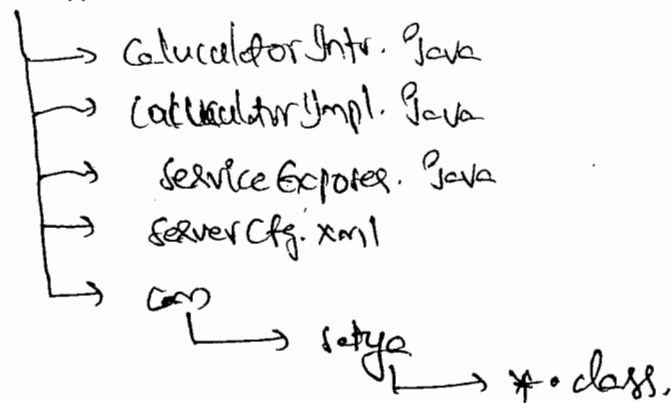 CaluculatorIntr.Java
CalculatorImpl.Java
ServiceExposer.Java
ServerCfg.xml
com
satya
*.class.